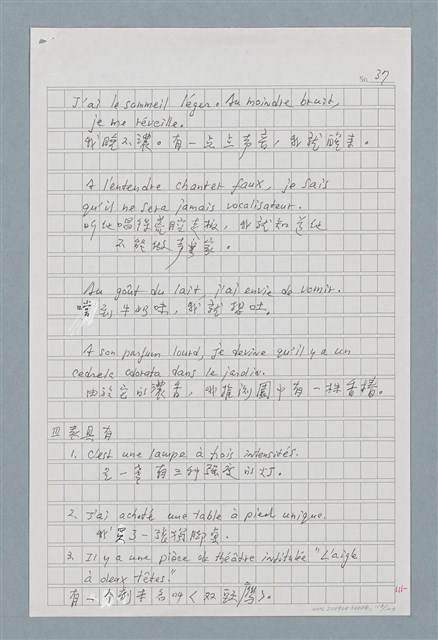 No. 37
J'ai le sommeil léger. Au moindre bruit,
je me réveille.
我睡不濃。有一点点声音，我就醒来。
A l'entendre chanter faux, je sais
qu'il ne sera jamais vocalisateur.
听他唱得荒腔走板，我就知道他
不能做声乐家。
Au goût du lait, j'ai envie de vomir.
嚐到牛奶味，我就想吐。
A son parfum lourd, je devine qu'il y a un
cedrela odorata dans le jardin.
由於它的濃香，我推測園中有一株香椿。
III 表具有
1. C'est une lampe à trois intensités.
是一盞有三种强度的灯。
2. J'ai acheté une table à pied unique.
我買了一張獨脚桌。
3. Il y a une pièce de théâtre intitulée "L'aigle
à deux têtes."
有一个剧本名叫《双頭鷹》。